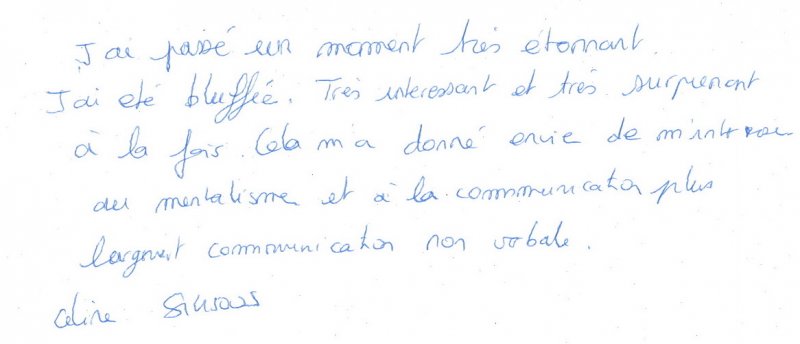 J'ai passé un moment très étonnant.
J'ai été bluffée. Très interessant et très surprenant
à la fois. Cela m'a donné envie de
au mentalisme et à la communication plus
largement communication non verbale.
Céline